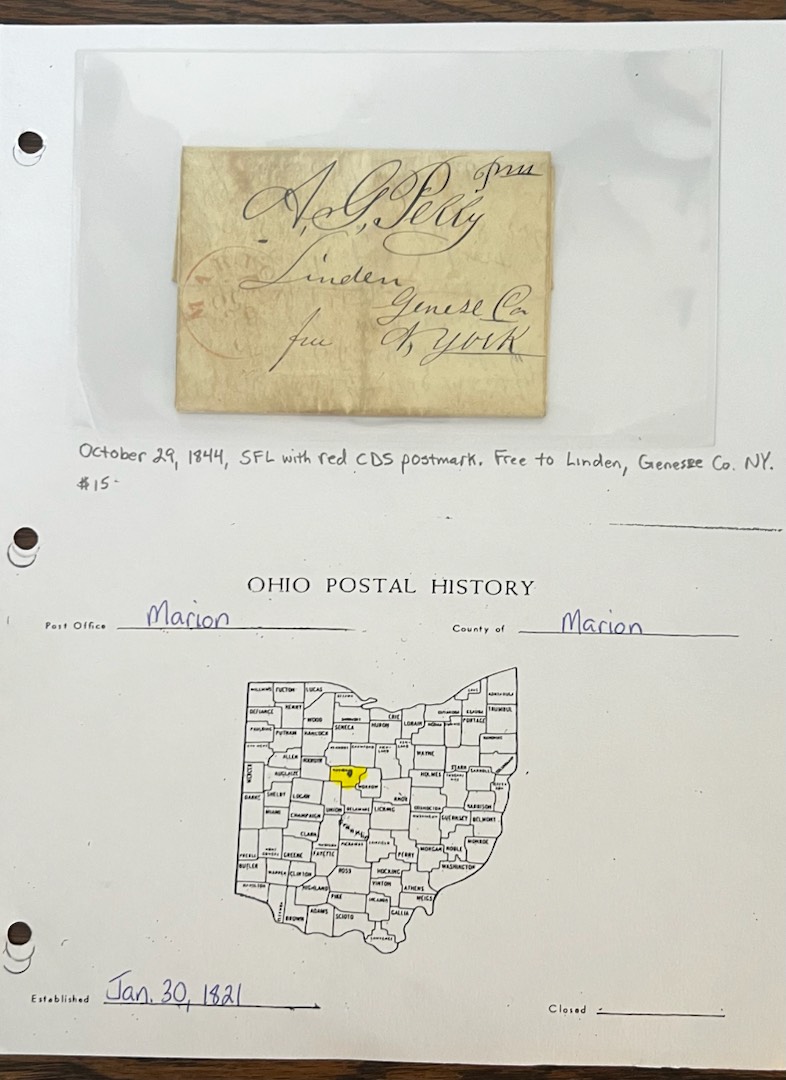 free
A. G. Pelly
Linden
Genese Co
free N, York
October 29, 1844, SFL with red CDS postmark. Free to Linden, Genesee Co. NY.
$15-
OHIO POSTAL HISTORY
Post Office Marion
County of Marion
WILLIAMS FULTON LUCAS
OTTAWA
LAKE ASHTABULA
DEFIANCE HENRY WOOD
SENECA ERIE
HURON LORAIN MEDINA PORTAGE TRUMBUL
PAULDING PUTNAM HANCOCK
ALLEN HARDIN
WAYNE STARK
MERCER AUGLAIZE
MORROW HOLMES CARROLL
DARKE SHELBY LOGAN
UNION DELAWARE KNOX
LICKING HARRISON
MIAMI CHAMPAIGN
GUERNSEY BELMONT
CLARK FRANKLIN
PREBLE GREENE FAYETTE PICKAWAY
PERRY MORGAN NOBLE MONROE
BUTLER WARREN CLINTON ROSS HOCKING WASHINGTON
HAMILTON HIGHLAND
VINTON ATHENS
PIKE MEIGS
BROWN ADAMS SCIOTO
GALLIA
Established Jan. 30, 1821
Closed